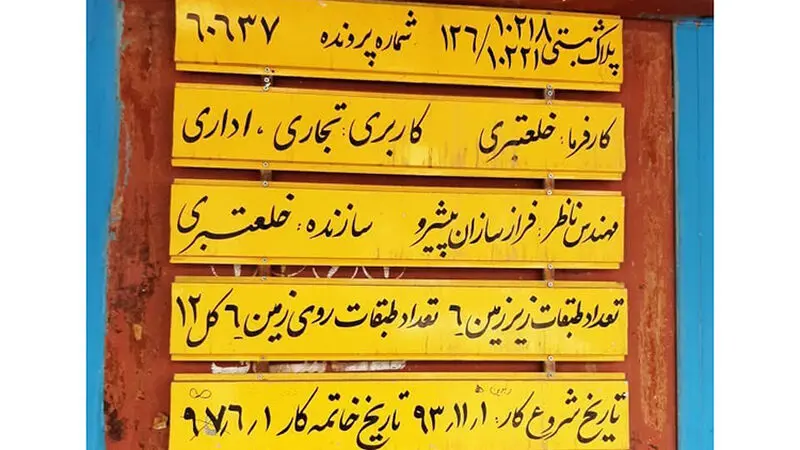 پلاک ثبتی ۱۰۲۱۸ / ۱۰۲۲۱ / ۱۲۶ شماره پرونده ۶۰۶۳۷
کارفرما: خلعتبری کاربری: تجاری، اداری
مهندس ناظر: فرازسازان پیشرو سازنده: خلعتبری
تعداد طبقات زیرزمین ۶ تعداد طبقات روی زمین ۶ کل ۱۲
تاریخ شروع کار: ۹۳٫۱۱٫۱ تاریخ خاتمه کار ۹۷٫۶٫۱